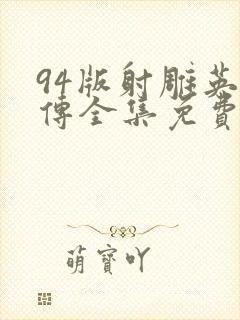 94版射雕英
傅全集免費
萌寶吖